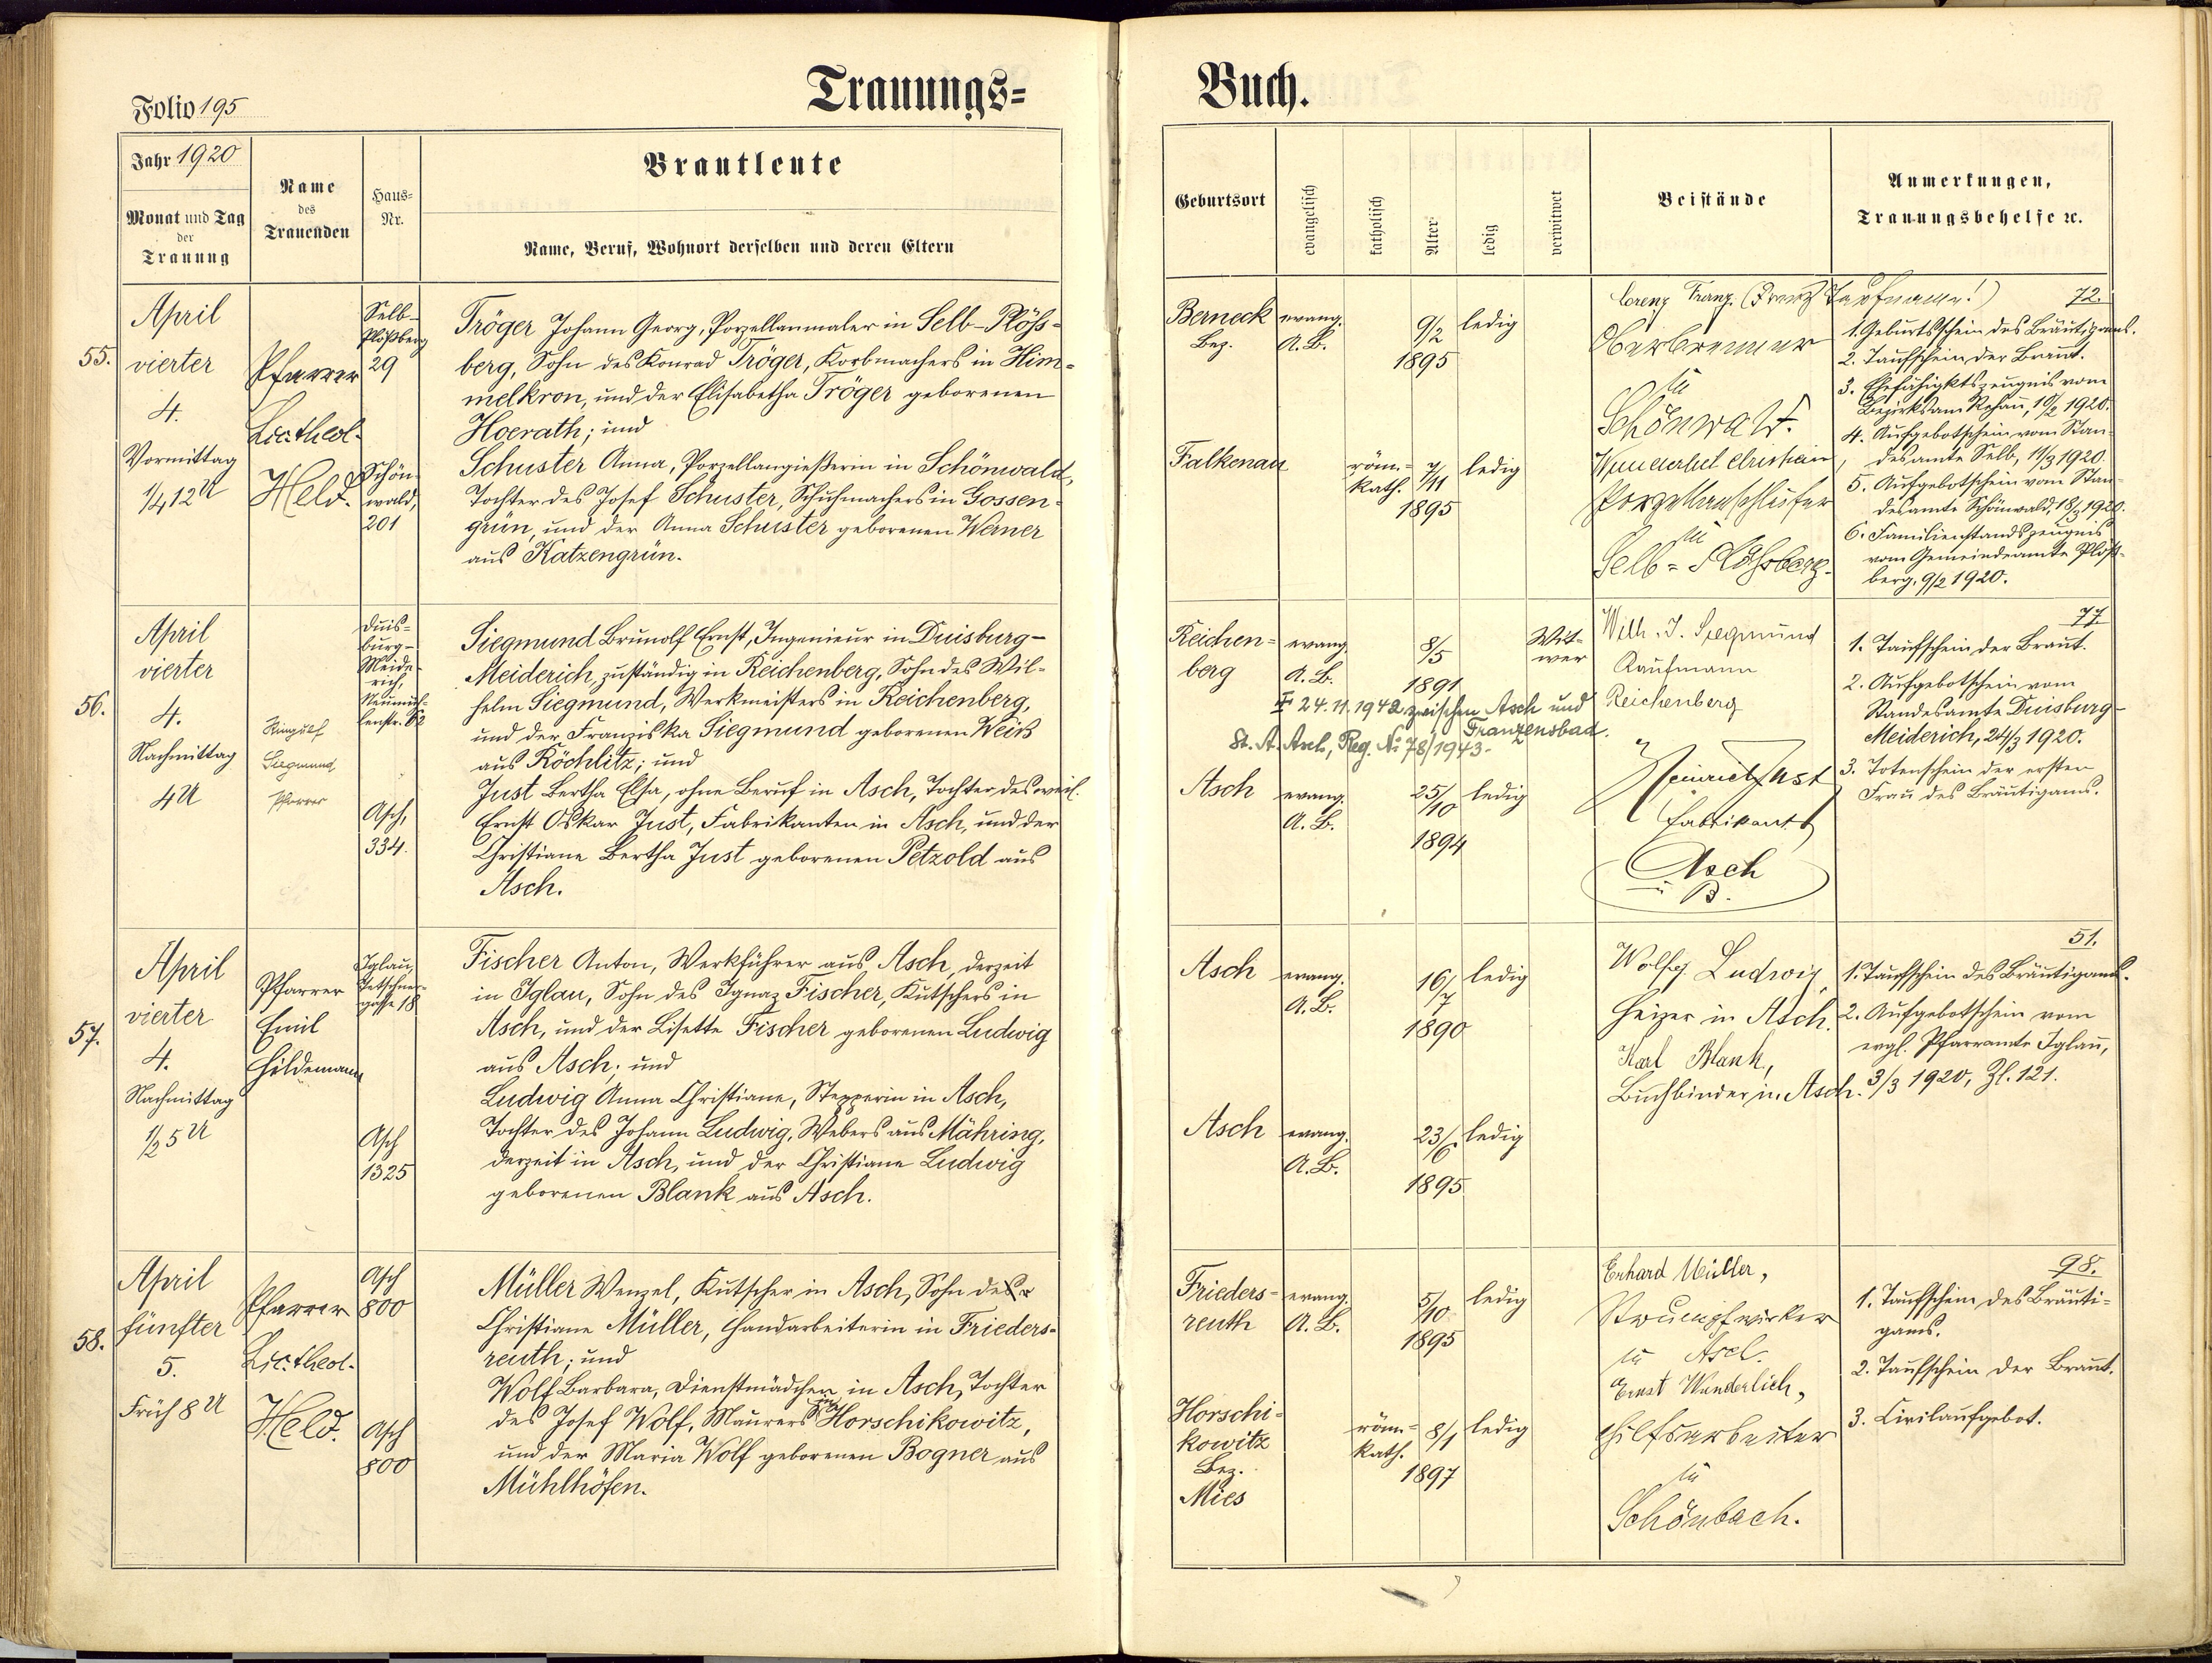 Trauungs=
Buch.
Folio 195
Jahr 1920
Monat und Tag
der
Trauung
Name
des
Trauenden
Haus-
Nr.
Brautleute
Name, Beruf, Wohnort derselben und deren Eltern
Geburtsort
evangelisch
katholisch
Alter
ledig
verwitwet
Beistände
Anmerkungen,
Trauungsbehelfe ꝛc.
55.
April
vierter
4.
Vormittag
1/4 12 U
Pfarrer
Lic. theol.
Held.
Selb-
Plößberg
29
Schön-
wald,
201
Tröger Johann Georg, Porzellanmaler in Selb-Plöß-
berg, Sohn des Konrad Tröger, Korbmachers in Him-
melkron, und der Elisabetha Tröger geborenen
Hoerath; und
Schuster Anna, Porzellangießerin in Schönwald,
Tochter des Josef Schuster, Schuhmachers in Gossen-
grün, und der Anna Schuster geborenen Werner
aus Katzengrün.
Berneck
Bez.
evang.
A. B.
9/2
1895
ledig
Falkenau
röm.-
kath.
7/11
1895
ledig
Lorenz Franz. (Franz Taufname!)
Oberbrenner
in
Schönwald.
Wunderlich Christian,
Porzellanschleifer
in
Selb-Plössberg.
72.
1. Geburtsschein des Bräutigams.
2. Taufschein der Braut.
3. Ehefähigktszeugnis vom
Bezirksam Rehau, 10/2 1920.
4. Aufgebotschein vom Stan-
desamte Selb, 11/3 1920.
5. Aufgebotschein vom Stan-
desamte Schönwald, 18/3 1920.
6. Familienstandszeugnis
vom Gemeindeamte Plöß-
berg, 9/2 1920.
56.
April
vierter
4.
Nachmittag
4 U
Ringulf
Siegmund
Pfarrer
Duis-
burg-
Meide-
rich,
Neumüh-
lenstr. 62
Asch,
334.
Siegmund Brunolf Ernst, Ingenieur in Duisburg-
Meiderich, zuständig in Reichenberg, Sohn des Wil-
helm Siegmund, Werkmeisters in Reichenberg,
und der Franziska Siegmund geborenen Weiß
aus Röchlitz; und
Just Bertha Elsa, ohne Beruf in Asch, Tochter des weil.
Ernst Oskar Just, Fabrikanten in Asch, und der
Christiane Bertha Just geborenen Petzold aus
Asch.
Reichen-
berg
evang.
A. B.
8/5
1891
Wit-
wer
24.11.1942 zwischen Asch und
Franzensbad.
St. A. Asch, Reg. No 78/1943.
Asch
evang.
A. B.
25/10
1894
ledig
Wilh. J. Siegmund
Kaufmann
Reichenberg
Heinrich Just
Fabrikant
Asch
i. B.
77
1. Taufschein der Braut.
2. Aufgebotschein vom
Standesamte Duisburg-
Meiderich, 24/3 1920.
3. Totenschein der ersten
Frau des Bräutigams.
57.
April
vierter
4.
Nachmittag
1/2 5 U
Pfarrer
Emil
Hildemann
Iglau,
gasse 18
Asch
1325
Fischer Anton, Werkführer aus Asch, derzeit
in Iglau, Sohn des Ignaz Fischer, Kutschers in
Asch, und der Lisette Fischer geborenen Ludwig
aus Asch; und
Ludwig Anna Christiane, Stepperin in Asch,
Tochter des Johann Ludwig, Webers aus Mähring,
derzeit in Asch, und der Christiane Ludwig
geborenen Blank aus Asch.
Asch
evang.
A. B.
16/7
1890
ledig
Asch
evang.
A. B.
23/6
1895
ledig
Wolfg. Ludwig,
Heizer in Asch.
Karl Blank,
Buchbinder in Asch.
51.
1. Taufschein des Bräutigams.
2. Aufgebotschein vom
evgl. Pfarramte Iglau,
3/3 1920, Zl. 121.
58.
April
fünfter
5.
Früh 8 U
Pfarrer
Lic. theol.
Held.
Asch
800
Asch
800
Müller Wenzel, Kutscher in Asch, Sohn der
Christiane Müller, Handarbeiterin in Frieders-
reuth; und
Wolf Barbara, Dienstmädchen in Asch, Tochter
des Josef Wolf, Maurers in Horschikowitz,
und der Maria Wolf geborenen Bogner aus
Mühlhöfen.
Frieders-
reuth
evang.
A. B.
5/10
1895
ledig
Horschi-
kowitz
Bez.
Mies
röm.-
kath.
8/1
1897
ledig
Erhard Müller,
Strumpfwirker
in Asch.
Ernst Wunderlich,
Hilfsarbeiter
in
Schönbach.
98.
1. Taufschein des Bräuti-
gams.
2. Taufschein der Braut.
3. Civilaufgebot.